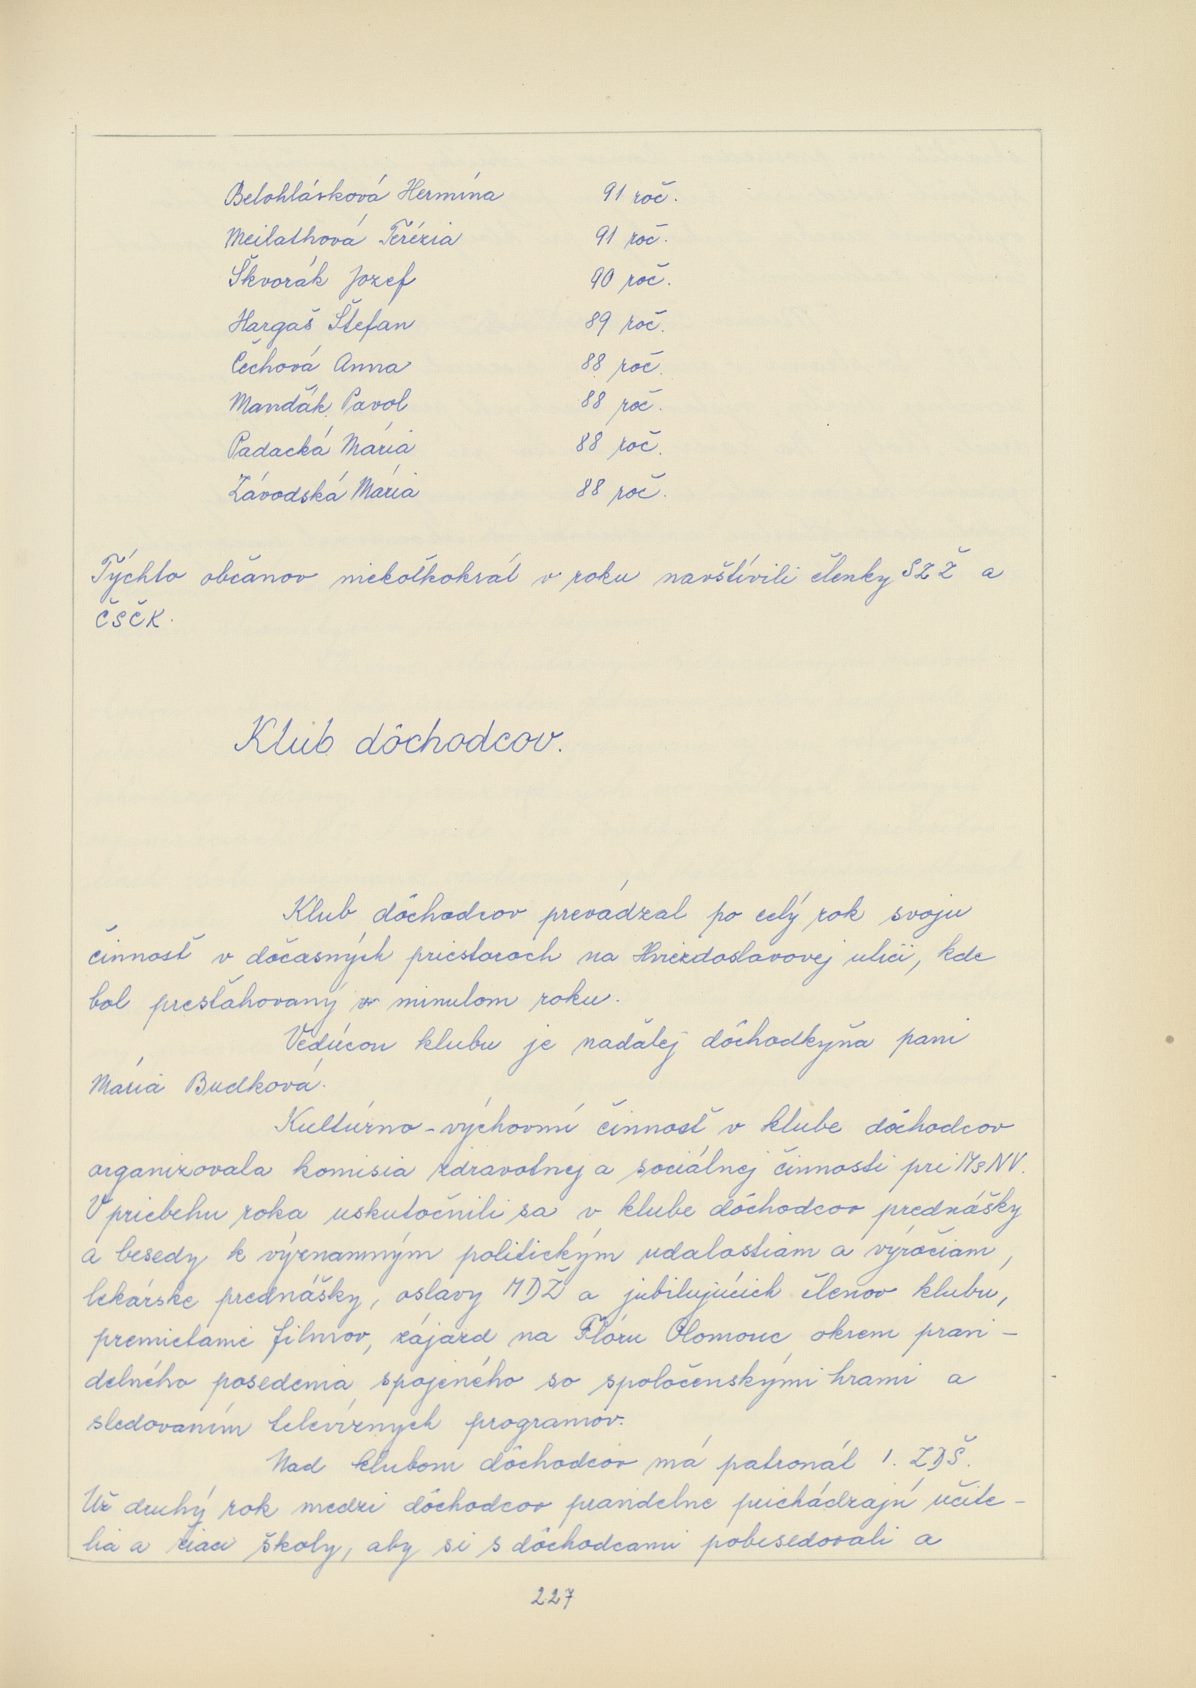 Belohlásková Hermína 91 roč.
Meilathová Terézia 91 roč.
Škvorák Jozef 90 roč.
Hargaš Štefan 89 roč.
Čechová Anna 88 roč.
Mandák Pavol 88 roč.
Padacká Mária 88 roč.
Závodská Mária 88 roč.
Týchto občanov niekoľkokrát v roku navštívili členky SZŽ a
ČSČK.
Klub dôchodcov.
Klub dôchodcov prevádzal po celý rok svoju
činnosť v dočasných priestoroch na Hviezdoslavovej ulici, kde
bol presťahovaný v minulom roku.
Vedúcou klubu je naďalej dôchodkyňa pani
Mária Budková.
Kultúrno-výchovnú činnosť v klube dôchodcov
organizovala komisia zdravotnej a sociálnej činnosti pri MsNV.
V priebehu roka uskutočnili sa v klube dôchodcov prednášky
a besedy k významným politickým udalostiam a výročiam,
lekárske prednášky, oslavy MDŽ a jubilujúcich členov klubu,
premietanie filmov, zájazd na Flóru Olomouc, okrem pravi-
delného posedenia spojeného so spoločenskými hrami a
sledovaním televíznych programov.
Nad klubom dôchodcov má patronát 1. ZDŠ.
Už druhý rok medzi dôchodcov pravidelne prichádzajú učite-
lia a žiaci školy, aby si s dôchodcami pobesedovali a
227